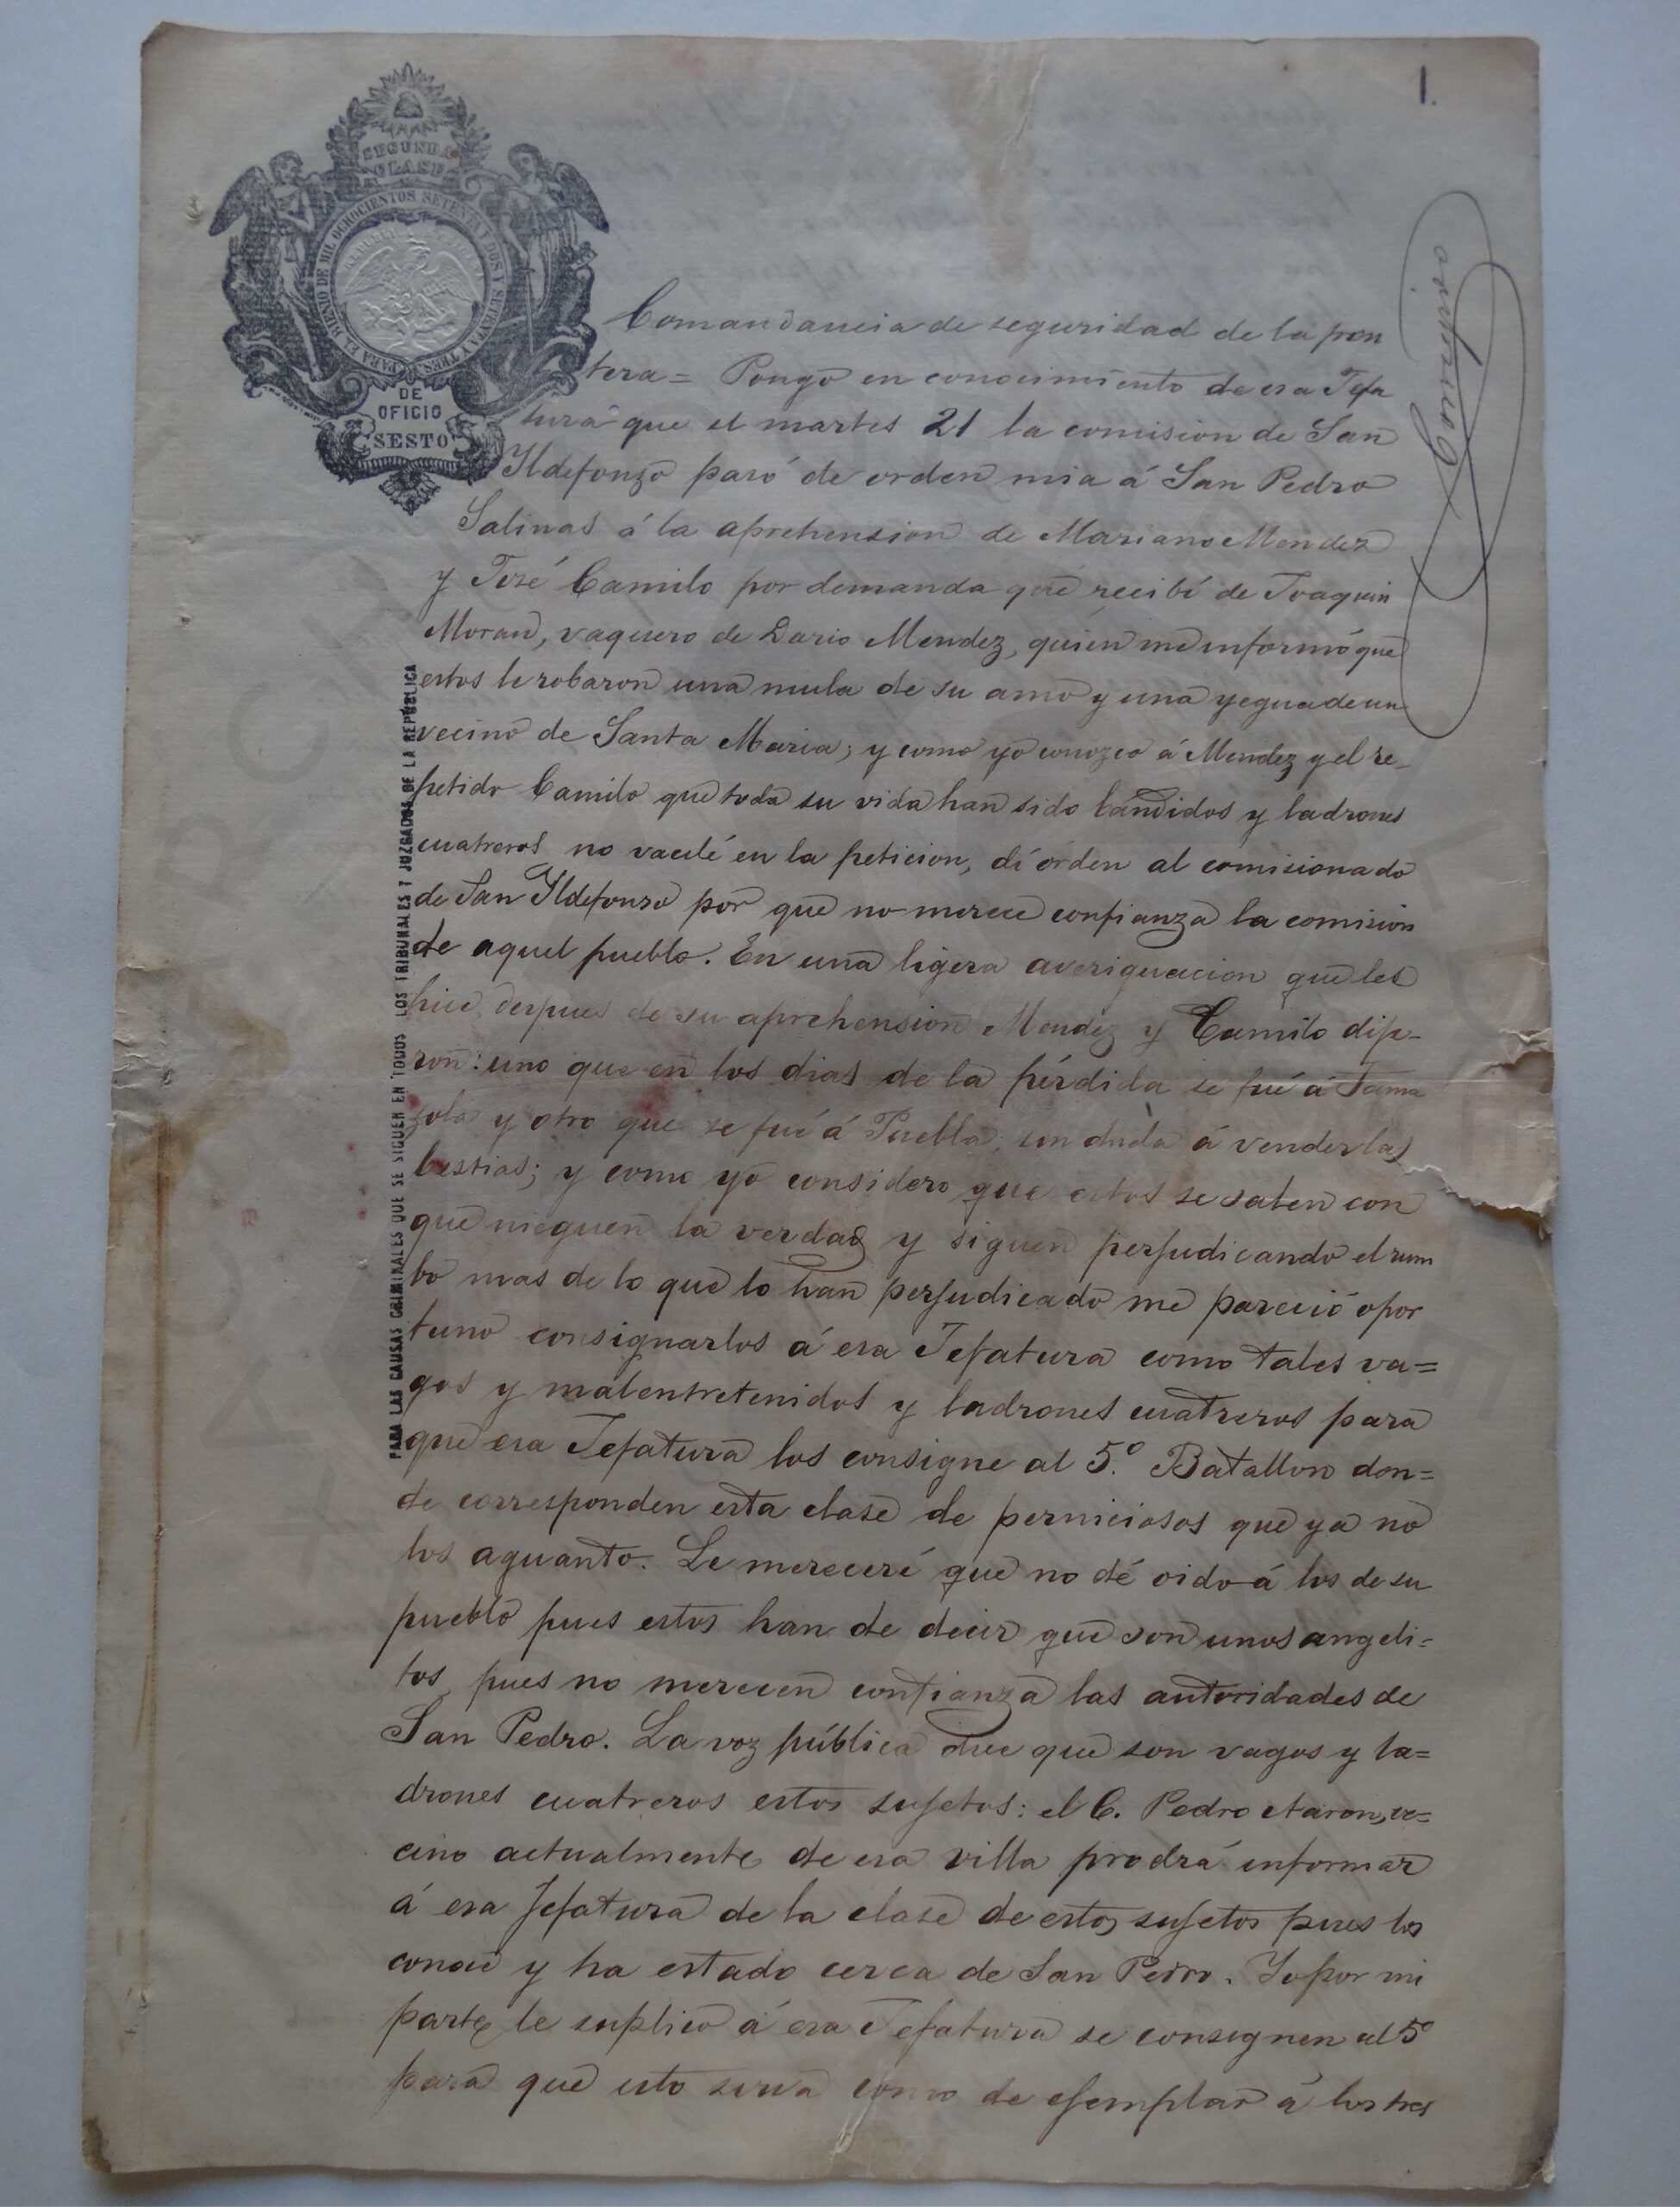 1.
SEGUNDA
CLASE
PARA EL BIENIO DE MIL OCHOCIENTOS SETENTA Y DOS Y SETENTA Y TRES
DE
OFICIO
SESTO
PARA LAS CAUSAS CRIMINALES QUE SE SIGUEN EN TODOS LOS TRIBUNALES Y JUZGADOS DE LA REPÚBLICA
Comandancia de seguridad de la fron
tera= Pongo en conocimiento de esa Jefa
tura que el martes 21 la comision de San
Ildefonzo pasó de orden mia á San Pedro
Salinas á la aprehension de Mariano Mendez
y José Camilo por demanda que recibí de Joaquin
Moran, vaquero de Dario Mendez, quien me informó que
estos le robaron una mula de su amo y una yegua de un
vecino de Santa Maria; y como yo conozco á Mendez y el re-
petido Camilo que toda su vida han sido bandidos y ladrones
cuatreros no vacilé en la peticion, dí orden al comisionado
de San Ildefonso por que no merece confianza la comision
de aquel pueblo. En una ligera averiguacion que les
hice despues de su aprehension Mendez y Camilo dije-
ron: uno que en los dias de la pérdida se fué á Tama
zola y otro que se fué á Puebla, sin duda á vender las
bestias; y como yo considero que estos se salen con
que nieguen la verdad y siguen perjudicando el rum
bo mas de lo que lo han perjudicado me pareció opor
tuno consignarlos á esa Jefatura como tales va=
gos y malentretenidos y ladrones cuatreros para
que esa Jefatura los consigne al 5.º Batallon don=
de corresponden esta clase de perniciosos que ya no
los aguanto. Le mereceré que no dé oido á los de su
pueblo pues estos han de decir que son unos angeli-
tos, pues no merecen confianza las autoridades de
San Pedro. La voz pública dice que son vagos y la=
drones cuatreros estos sujetos: el C. Pedro Aaron, ve=
cino actualmente de esa villa prodrá informar
á esa Jefatura de la clase de estos sujetos pues los
conoce y ha estado cerca de San Pedro. Yo por mi
parte le suplico á esa Jefatura se consignen al 5º
para que esto sirva como de ejemplar á los tres